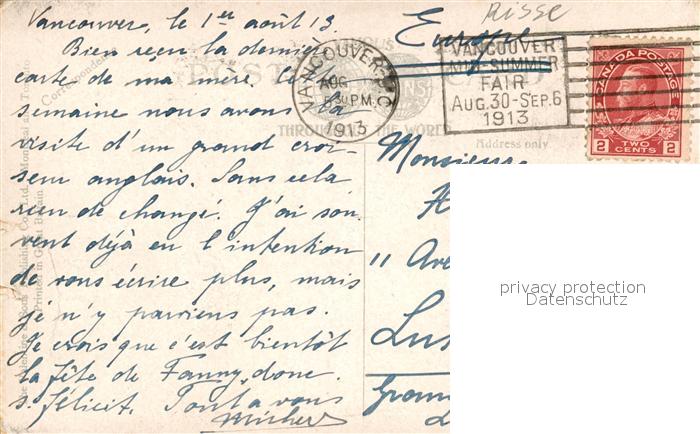 Vancouver, le 1er août 13.
Bien reçu la dernière
carte de ma mère. Cette
semaine nous avons la
visite d'un grand croi-
seur anglais. Sans cela
rien de changé. J'ai sou-
vent déjà eu l'intention
de vous écrire plus, mais
je n'y parviens pas.
Je crois que c'est bientôt
la fête de Fanny, donc
s. félicit. Tout à vous
Europe
VANCOUVER, B.C.
AUG
PM
1913
VANCOUVER
MID-SUMMER
FAIR
AUG. 30-SEP. 6
1913
CANADA POSTAGE
2 TWO CENTS 2
POST CARD
Correspondence
THROUGHOUT THE WORLD
Address only
Printed in Great Britain
Monsieur
11 Ave
privacy protection
Datenschutz